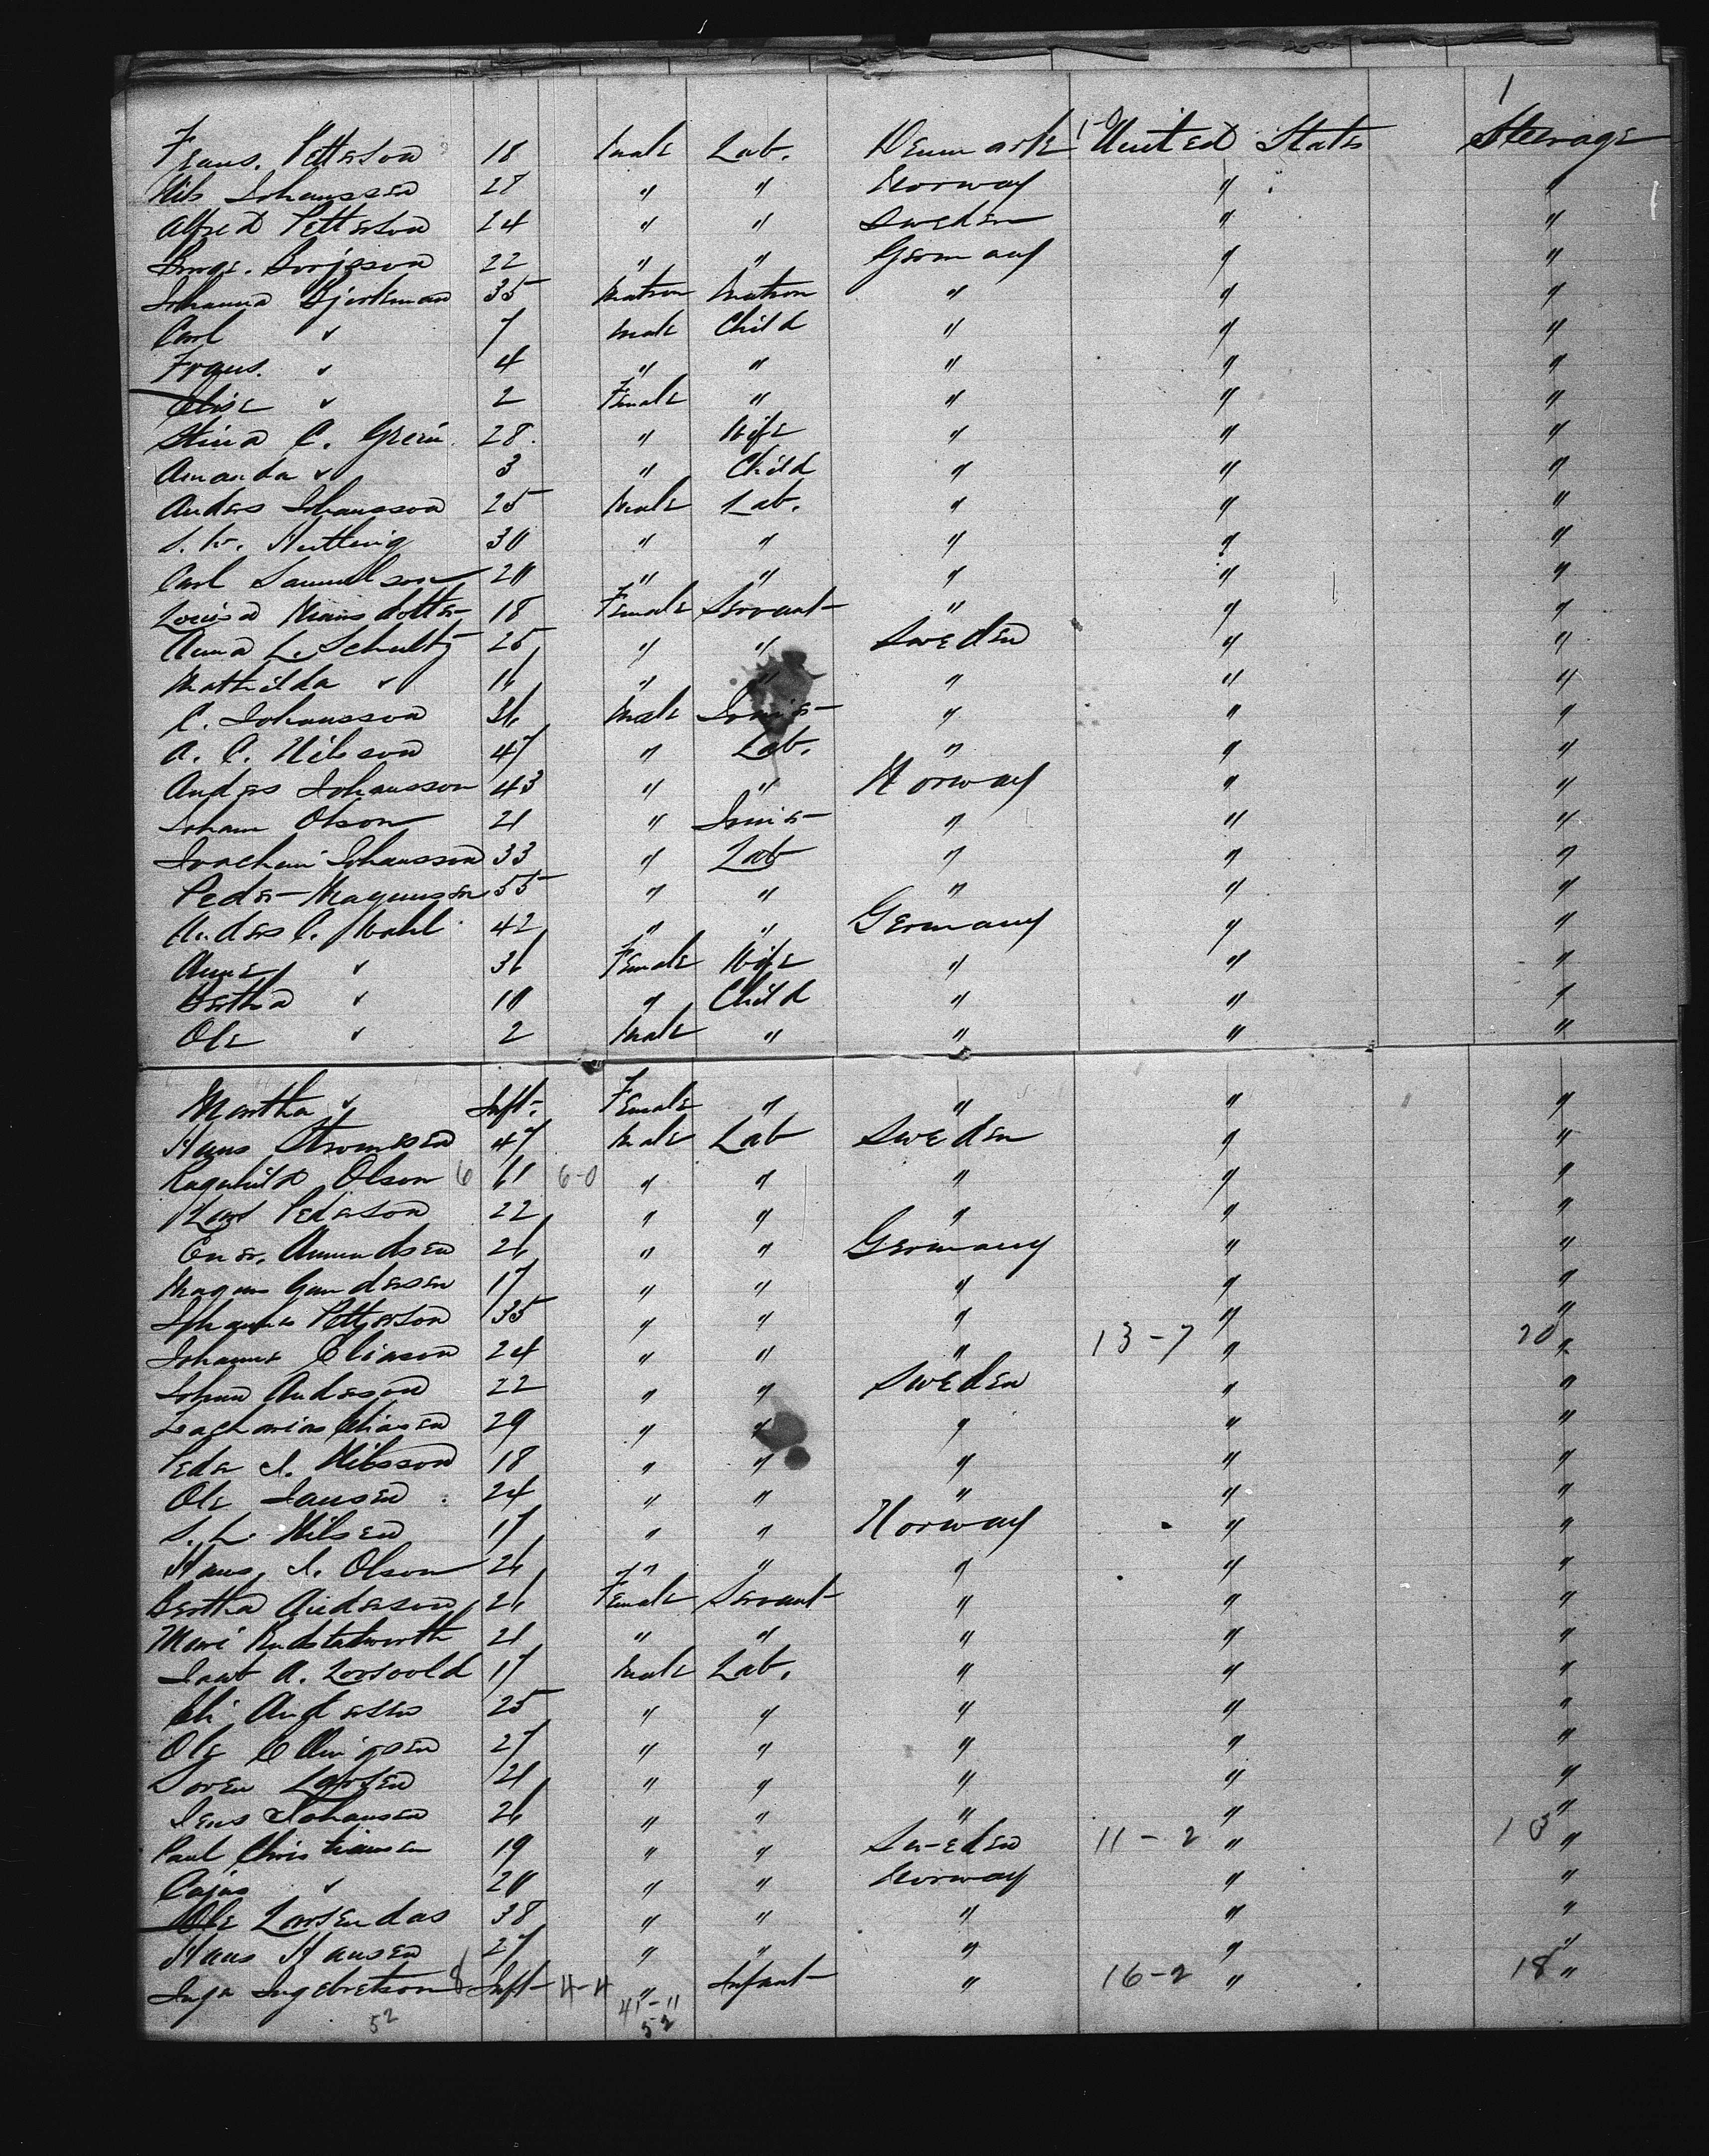 1
Frans. Petterson 18 Male Lab. Denmark 1-0 United States Steerage
Nils Johanssen 28 " " Norway " "
Alfred Petterson 24 " " Sweden " "
22 " " Germany " "
Johanna Bjorkman 35 Matron Matron " " "
Carl " 7 Male Child " " "
Frans. " 4 " " " " "
Elise " 2 Female " " " "
Stina C. Green 28. " Wife " " "
Amanda " 3 " Child " " "
Anders Johansson 25 Male Lab. " " "
30 " " " " "
Carl Samuelson 20 " " " " "
Lovisa Monsdotter 18 Female Servant " " "
Anna L. Schultz 25 " " Sweden " "
Mathilda " 16 " " " " "
C. Johansson 36 Male " " "
A. C. Nilsson 47 " Lab. " " "
Anders Johansson 43 " " Norway " "
Johan Olson 21 " " " "
Joachim Johansson 33 " Lab " " "
Peder Magnussen 55 " " " " "
Anders C. Wahl 42 " " Germany " "
Anne " 36 Female Wife " " "
Bertha " 10 " Child " " "
Ole " 2 Male " " " "
Martha " Inft. Female " " " "
Hans Stromssen 47 Male Lab Sweden " "
Ragnhild Olson 6 61 6-0 " " " " "
Lars Pederson 22 " " " " "
Amundsen 26 " " Germany " "
Magnus Gundersen 17 " " " " "
Johannes Petterson 35 " " " " "
Johannes Eliason 24 " " " 13-7 " 20 "
Johan Anderson 22 " " Sweden " "
Zacharias Eliasen 29 " " " " "
Peder J. Nilsson 18 " " " " "
Ole Jansen 24 " " " " "
S. L. Nilsen 17 " " Norway " "
Hans J. Olson 26 " " " " "
Bertha Anderson 26 Female Servant " " "
Mari 21 " " " " "
A. 17 Male Lab. " " "
Eli Andersen 25 " " " " "
Ole Ellingsen 27 " " " " "
Soren Larsen 21 " " " " "
Jens Johansen 26 " " " " "
Paul Christiansen 19 " " Sweden 11-2 " 13 "
Cajas " 20 " " Norway " "
Ole Larsendas 38 " " " " "
Hans Hansen 27 " " " " "
Inga Ingebretson 8 Inft 4-4 " Infant " 16-2 " 18 "
52 41-11
52